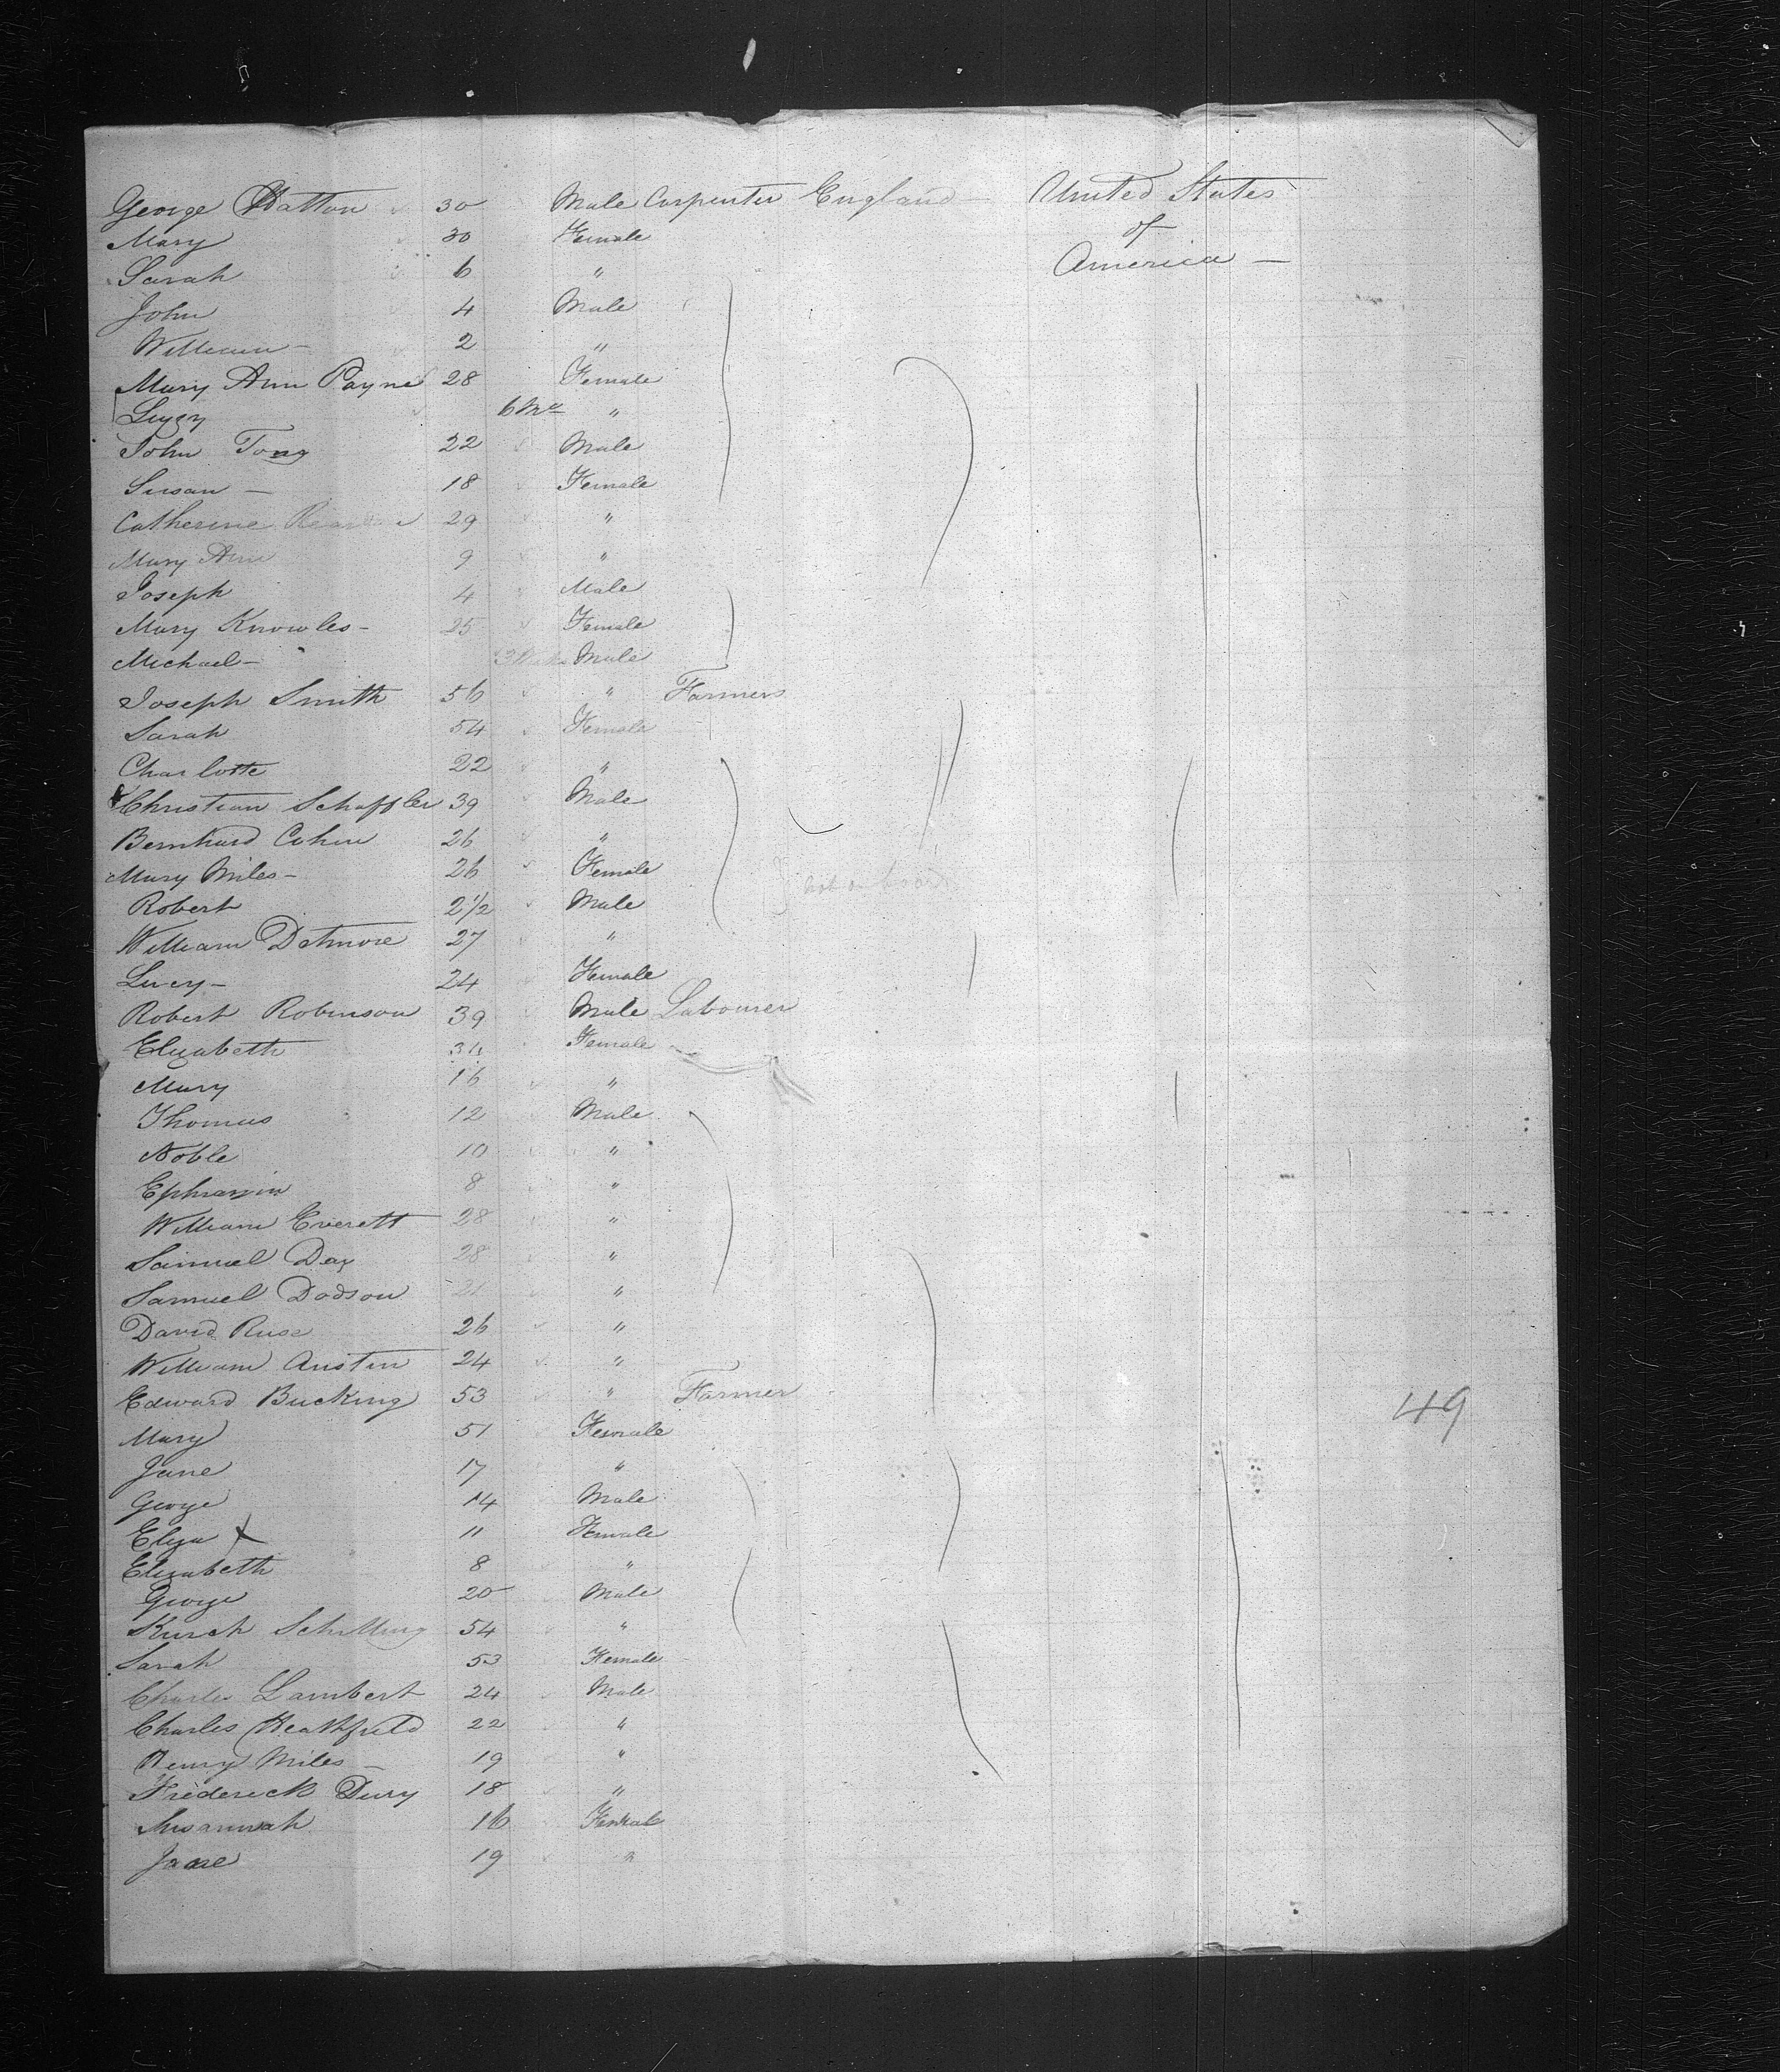 George Hatton 30 Male Carpenter England United States
Mary 30 Female of
Sarah 6 " America
John 4 Male
William 2 "
Mary Ann Payne 28 Female
6 Mo "
John 22 Male
Susan 18 Female
Catherine 29 "
Mary Ann 9 "
Joseph 4 Male
Mary Knowles 25 Female
Michael 3 Male
Joseph Smith 56 " Farmers
Sarah 54 Female
Charlotte 22 "
Christian Schaffler 39 Male
Bernhard Cohen 26 "
Mary Miles 26 Female
Robert 2 1/2 Male
William Detmore 27 "
Lucy 24 Female
Robert Robinson 39 Male Labourer
Elizabeth 34 Female
Mary 16 "
Thomas 12 Male
Noble 10 "
Ephraim 8 "
William Everett 28 "
Samuel Day 28 "
Samuel Dodson 21 "
David Ruse 26 "
William Austin 24 "
Edward Bucking 53 " Farmer 49
Mary 51 Female
Jane 17 "
George 14 Male
Eliza x 11 Female
Elizabeth 8 "
George 20 Male
Schilling 54 "
Sarah 53 Female
Charles Lambert 24 Male
Charles Heathfield 22 "
Henry Miles 19 "
Frederick Dury 18 "
Susannah 16 Female
Jane 19 "